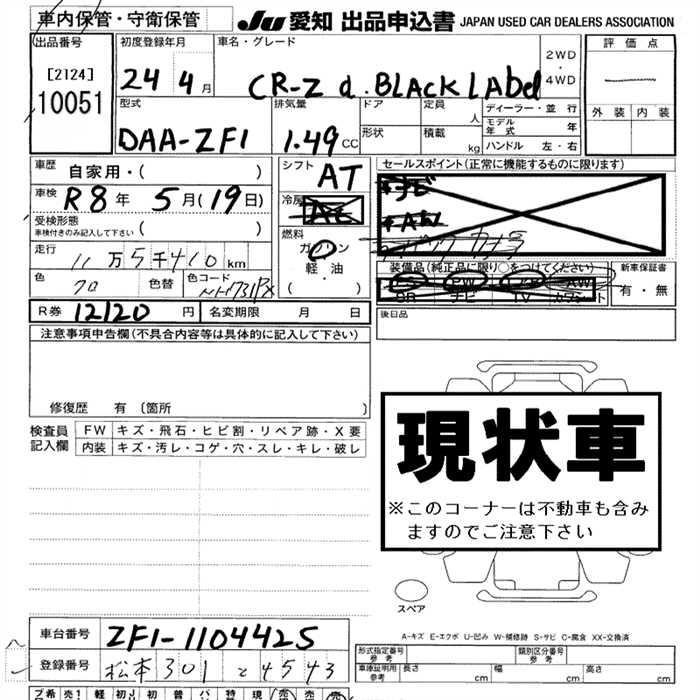 車内保管・守衛保管
JU 愛知 出品申込書 JAPAN USED CAR DEALERS ASSOCIATION
出品番号
[2124]
10051
初度登録年月
24 4 月
車名・グレード
CR-Z α・BLACK LAbel
2WD
・
4WD
評価点
外装 内装
型式
DAA-ZF1
排気量
1.49 CC
ドア
定員
人
形状
積載
kg
ディーラー・並行
モデル年式 年
ハンドル 左・右
車歴
自家用・( )
車検
R8年 5月(19日)
受検形態
車検付きのみ記入して下さい ( )
走行
11万5千410km
色
クロ
色替
色コード
NH731PX
シフト
AT
冷房
AC
燃料
ガソリン
軽油
( )
セールスポイント(正常に機能するものに限ります)
ナビ
装備品(純正品に限り○をつけてください)
PS PW AW
SR ナビ TV カワシート
新車保証書
有・無
後日品
R券 12120 円
名変期限 月 日
注意事項申告欄(不具合内容等は具体的に記入して下さい)
修復歴 有 〔箇所 〕
検査員記入欄
FW キズ・飛石・ヒビ割・リペア跡・X要
内装 キズ・汚レ・コゲ・穴・スレ・キレ・破レ
現状車
※このコーナーは不動車も含み
ますのでご注意下さい
スペア
A-キズ E-エクボ U-凹み W-補修跡 S-サビ C-腐食 XX-交換済
車台番号 ZF1-1104425
登録番号 松本 301 と 4543
形式指定番号
参考
類別区分番号
参考
車庫証明用
参考
長さ cm 幅 cm 高さ cm